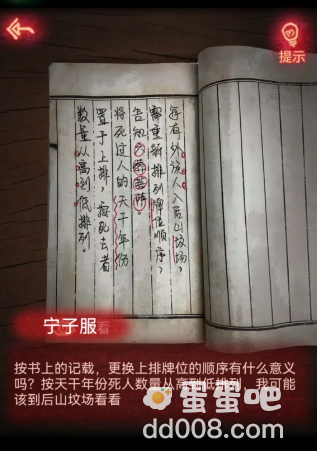 提示
每有外族人入后山坟场，
需重新排列牌位顺序，
告知六葬菩萨。
将死过人的天干年份
置于上排，按死去者
数量从高到低排列。
宁子服
看
按书上的记载，更换上排牌位的顺序有什么意义
吗？按天干年份死人数量从高到低排列，我可能
该到后山坟场看看
蛋蛋吧
dd008.com